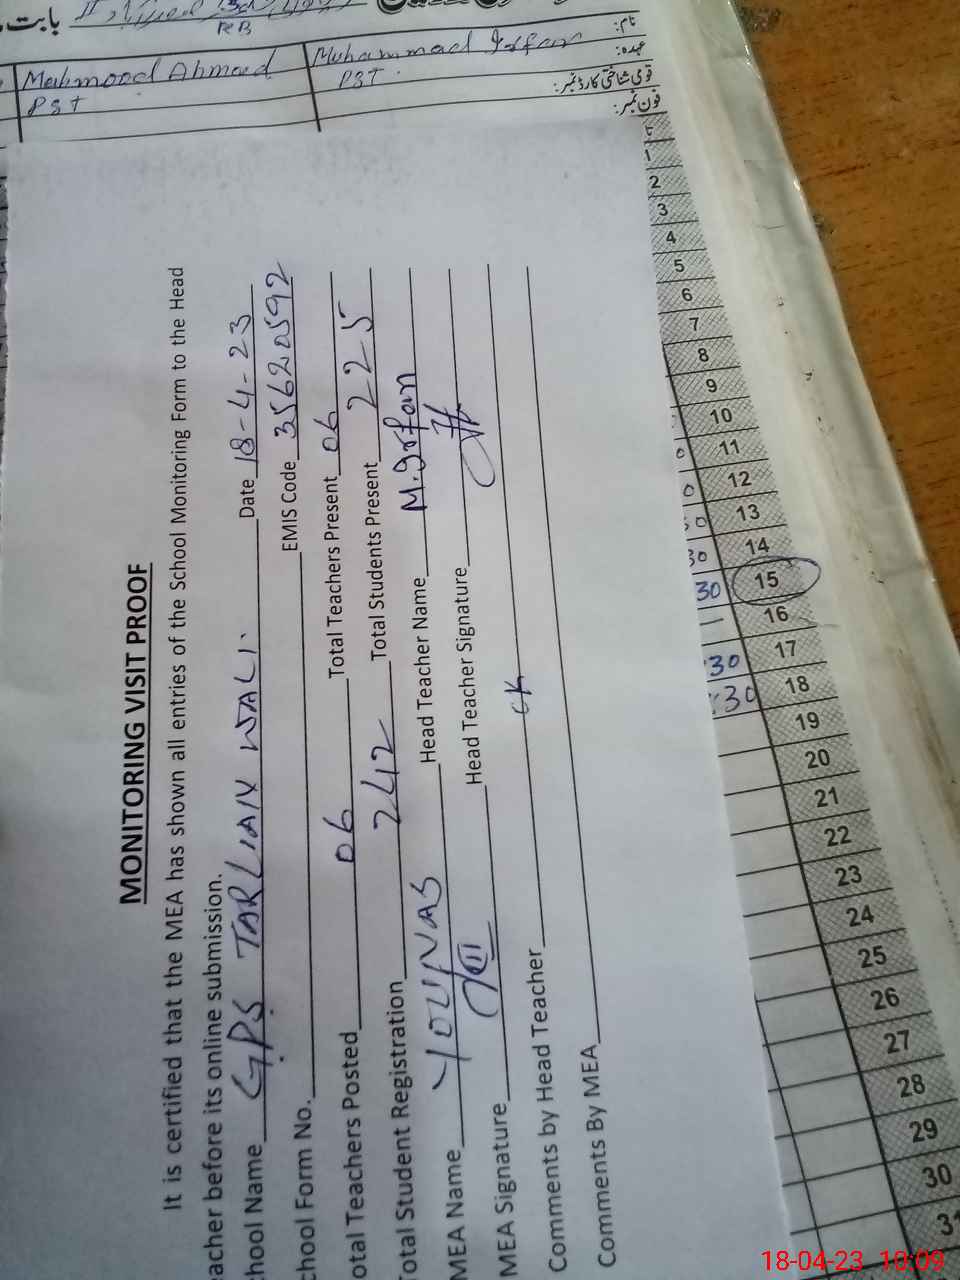 بابت
RB
نام:
Muhammad Irfan
Mahmood Ahmad
عہدہ:
PST
PST
قومی شناختی کارڈ نمبر:
فون نمبر:
MONITORING VISIT PROOF
It is certified that the MEA has shown all entries of the School Monitoring Form to the Head
eacher before its online submission.
chool Name GPS TARLIAN WALI. Date 18-4-23
chool Form No. EMIS Code 35620592
otal Teachers Posted 06 Total Teachers Present 06
Total Student Registration 242 Total Students Present 225
MEA Name YOUNAS Head Teacher Name M. Irfan
MEA Signature Head Teacher Signature
Comments by Head Teacher ok
Comments By MEA
1
2
3
4
5
6
7
8
9
10
0 11
0 12
30 13
30 14
30 15
16
:30 17
:30 18
19
20
21
22
23
24
25
26
27
28
29
30
31
18-04-23 10:09